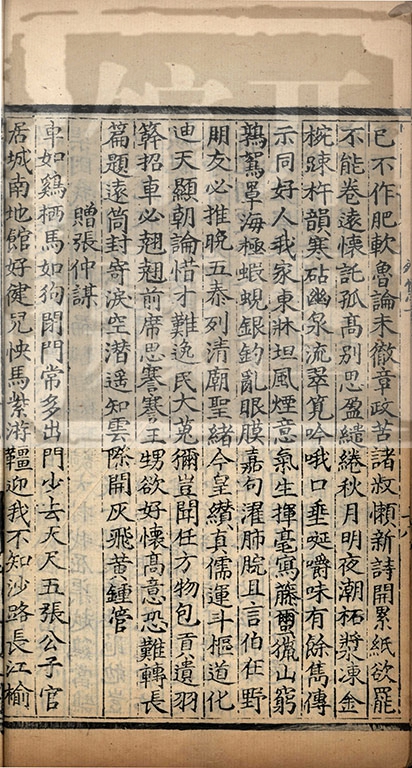 已不作肥軟魯論未徹章政苦諸叔懶新詩開累紙欲罷
不能卷遠懷託孤高別思盈繾綣秋月明夜潮柘漿凍金
椀疎杵韻寒砧幽泉流翠筧吟哦口垂涎嚼味有餘雋傳
示同好人我家東牀坦風煙意氣生揮毫寫藤蠒獵山窮
鵝鴐罩海極蝦蜆銀鉤亂眼膜嘉句濯肺脘且言伯在野
朋友必推晚五泰列清廟聖緒今皇纘真儒運斗樞道化
迪天顯朝論惜才難逸民大蒐獮豈聞任方物包貢遺羽
簳招車必翹翹前席思謇謇王甥欲好懷高意恐難轉長
篇題遠筒封寄淚空潛遥知雲際開灰飛黃鍾管
贈張仲謀
車如鷄栖馬如狗閉門常多出門少去天尺五張公子官
居城南地館好健兒怏馬紫游韁迎我不知沙路長江榆